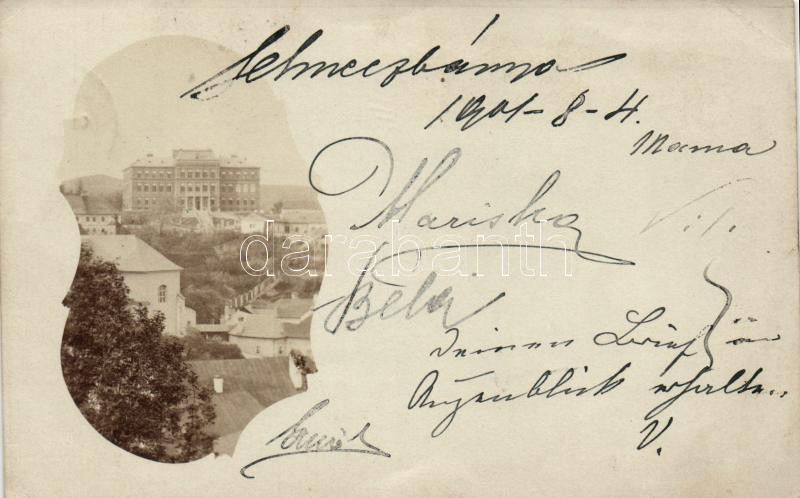 Selmeczbánya
1901-8-4.
Mama
Mariska
Vili
Béla
darabanth.com
Deinen Brief im
Augenblick erhalten.
V.